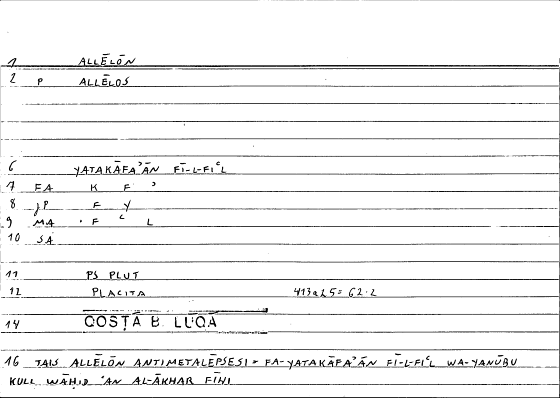 1 ALLĒLŌN
2 P ALLĒLOS
6 YATAKĀFAʾĀN FĪ-L-FIʿL
7 FA K F ʾ
8 JP F Y
9 MA · F ʿ L
10 SA
11 PS PLUT
12 PLACITA 413a25 = 62.2
14 COSTĀ B. LŪQĀ
16 TAIS ALLĒLŌN ANTIMETALĒPSESI = FA-YATAKĀFAʾĀN FĪ-L-FIʿL WA-YANŪBU
KULL WĀḤID ʿAN AL-ĀKHAR FĪHI